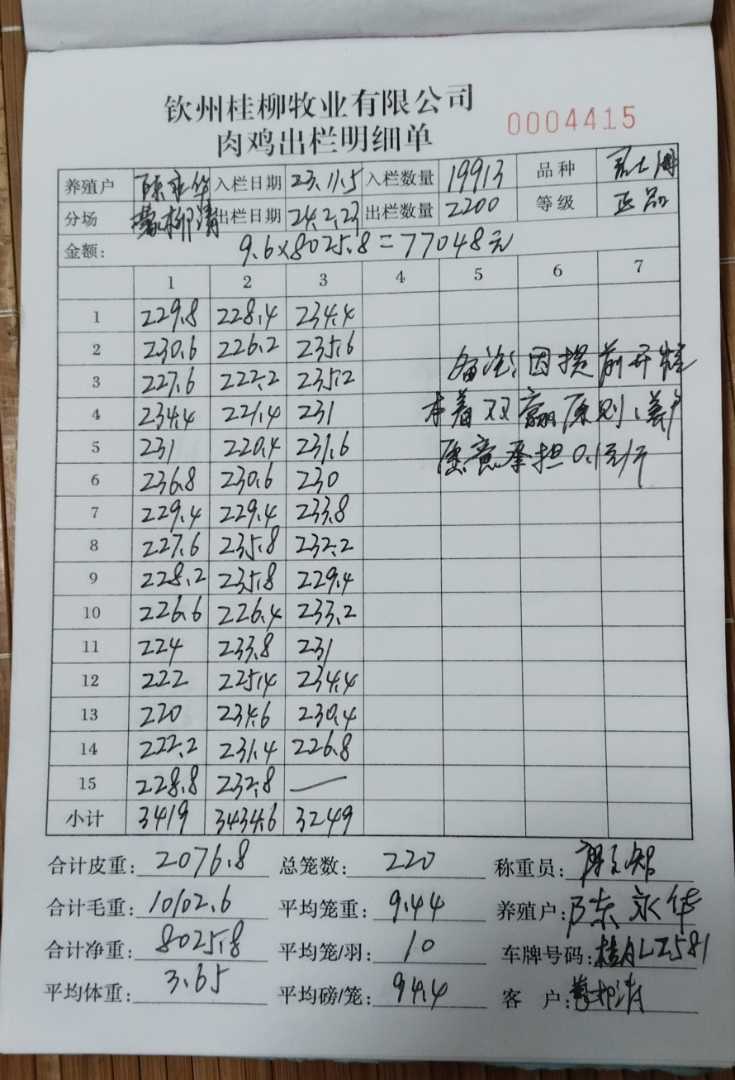 钦州桂柳牧业有限公司
肉鸡出栏明细单 0004415
养殖户 陈永华 入栏日期 23.11.5 入栏数量 19913 品种
分场 入栏日期 24.2.23 出栏数量 2200 等级 正品
金额: 9.6×8025.8=77048元
1 2 3 4 5 6 7
1 229.8 228.4 234.4
2 230.6 226.2 235.6
3 227.6 222.2 235.2
4 234.4 221.4 231
5 231 220.4 231.6
6 236.8 230.6 230
7 229.4 229.4 233.8
8 227.6 235.8 232.2
9 228.2 235.8 229.4
10 226.6 226.4 233.2
11 224 233.8 231
12 222 225.4 234.4
13 220 234.6 230.4
14 222.2 231.4 226.8
15 228.8 232.8 —
小计 3419 3434.6 3249
备注:因提前开
本着双赢原则,养户
愿意承担0.1元/斤
合计皮重: 2076.8 总笼数: 220 称重员:
合计毛重: 10102.6 平均笼重: 9.44 养殖户: 陈永华
合计净重: 8025.8 平均笼/羽: 10 车牌号码:
平均体重: 3.65 平均磅/笼: 94.4 客户: